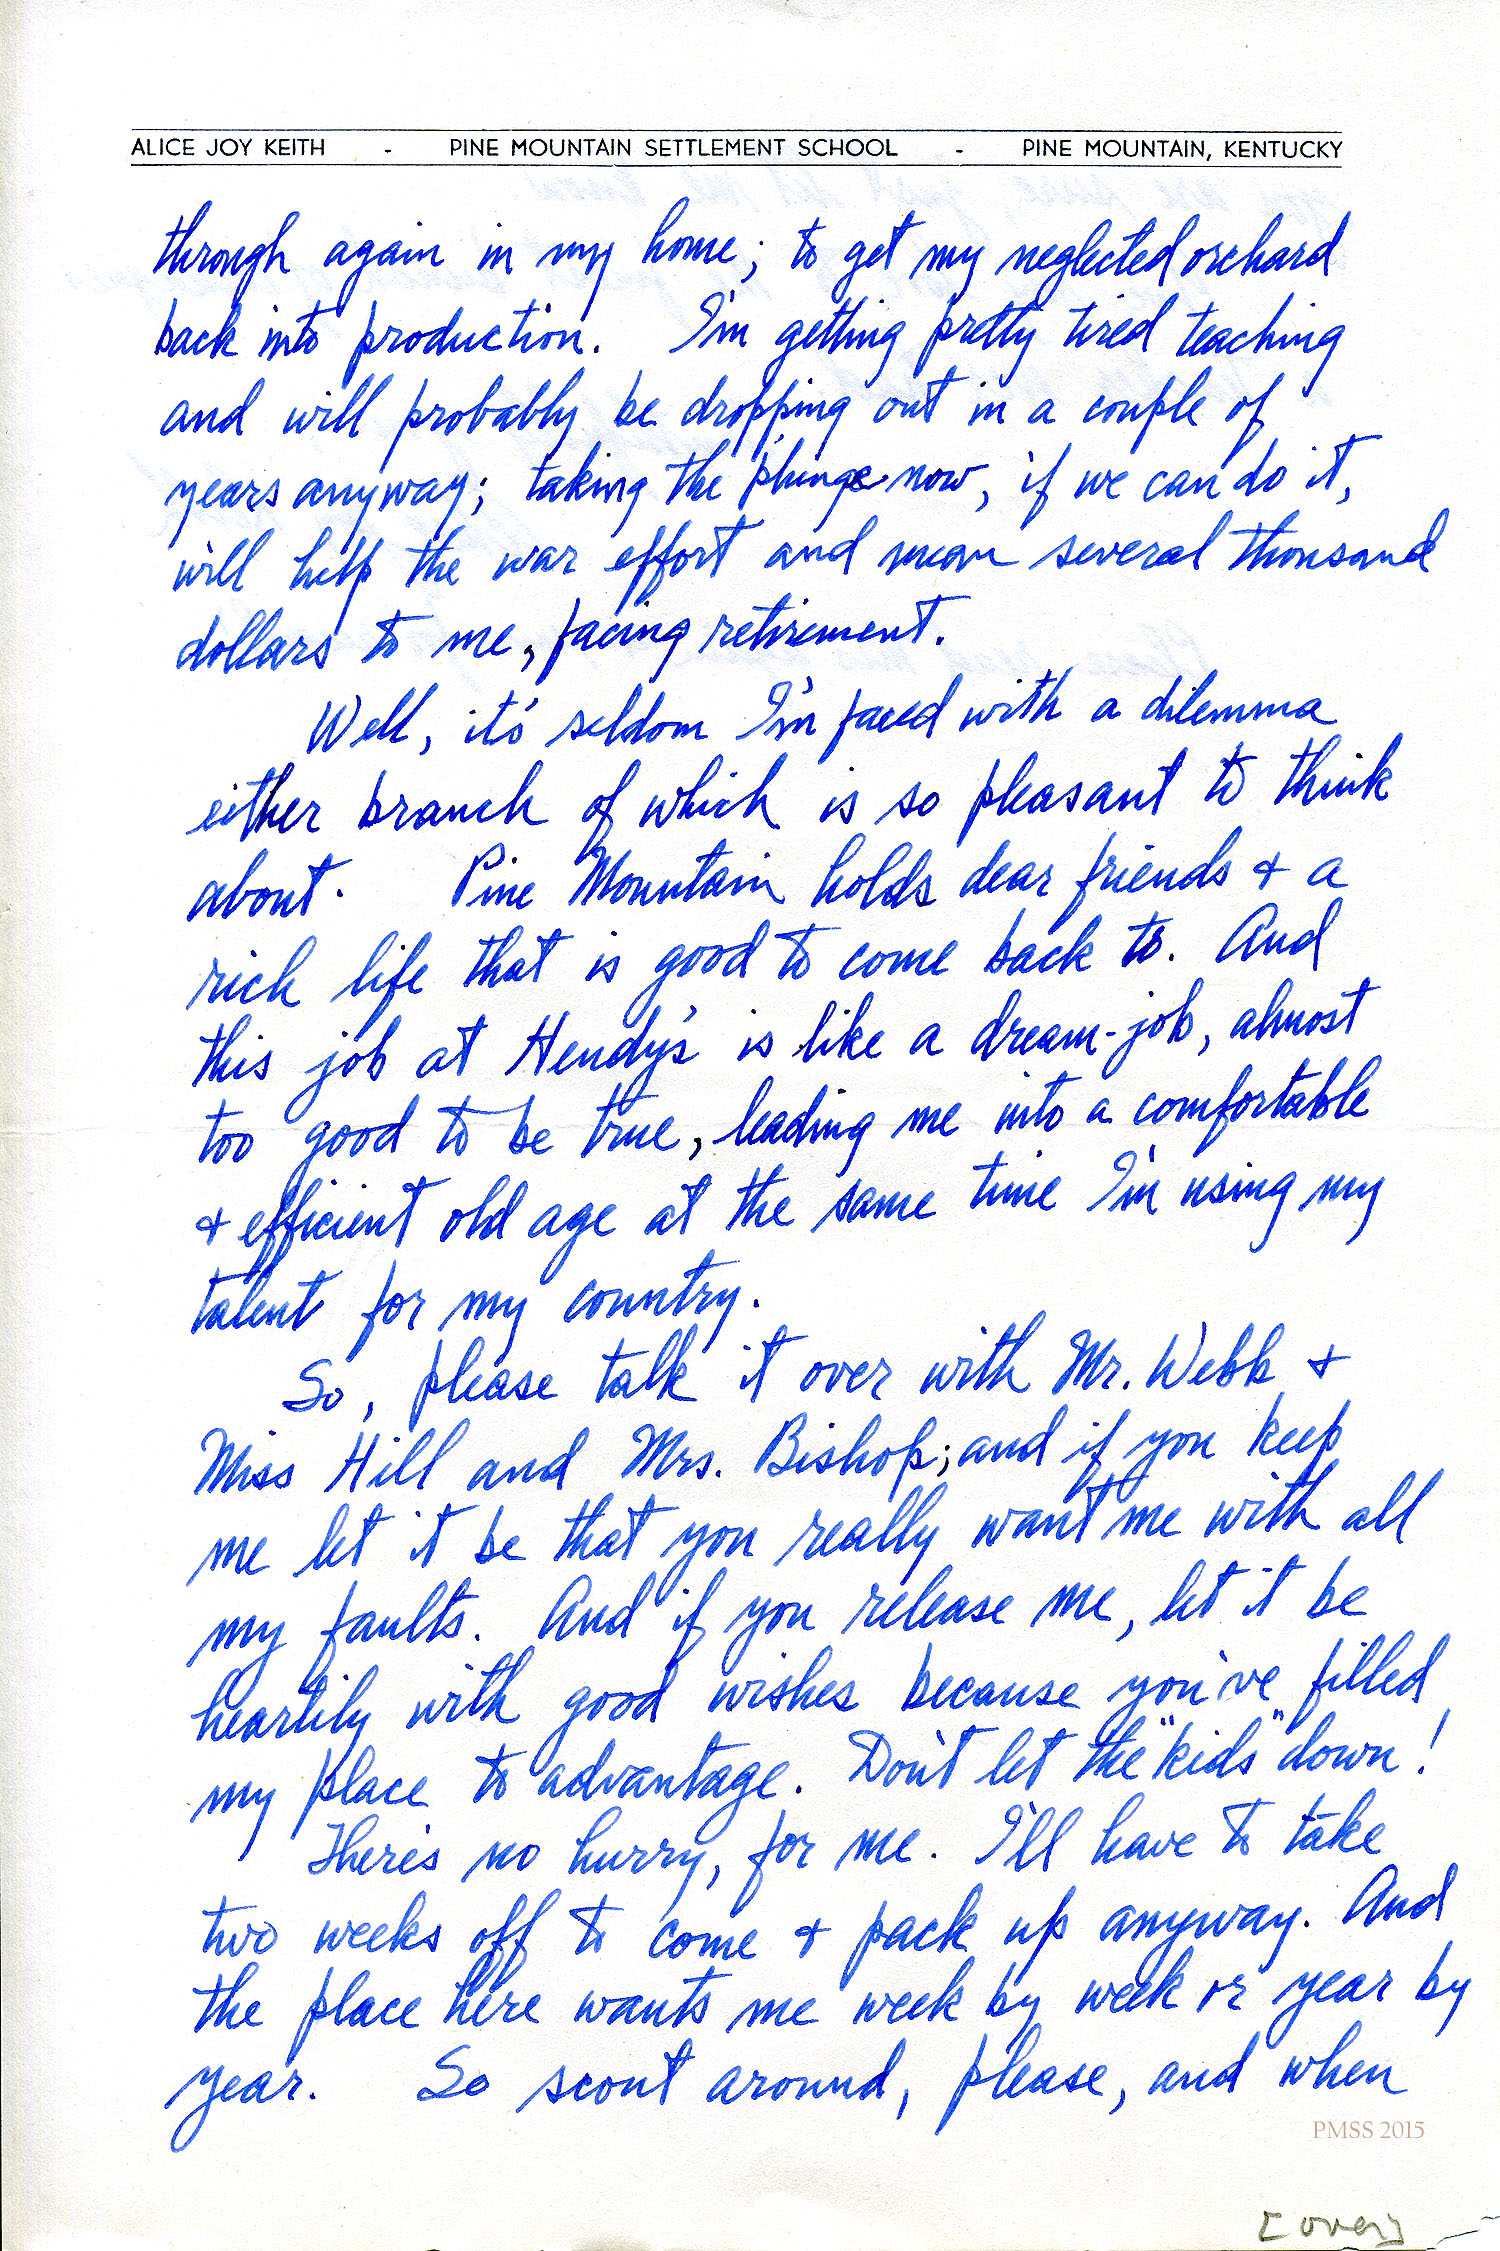 ALICE JOY KEITH - PINE MOUNTAIN SETTLEMENT SCHOOL - PINE MOUNTAIN, KENTUCKY
through again in my home; to get my neglected orchard
back into production. I'm getting pretty tired teaching
and will probably be dropping out in a couple of
years anyway; taking the plunge now, if we can do it,
will help the war effort and mean several thousand
dollars to me, facing retirement.
Well, it's seldom I'm faced with a dilemma
either branch of which is so pleasant to think
about. Pine Mountain holds dear friends & a
rich life that is good to come back to. And
this job at Hendy's is like a dream-job, almost
too good to be true, leading me into a comfortable
& efficient old age at the same time I'm using my
talent for my country.
So, please talk it over with Mr. Webb &
Miss Hill and Mrs. Bishop; and if you keep
me let it be that you really want me with all
my faults. And if you release me, let it be
heartily with good wishes because you've filled
my place to advantage. Don't let the "kids" down!
There's no hurry, for me. I'll have to take
two weeks off to come & pack up anyway. And
the place here wants me week by week or year by
year. So scout around, please, and when
PMSS 2015
[over]